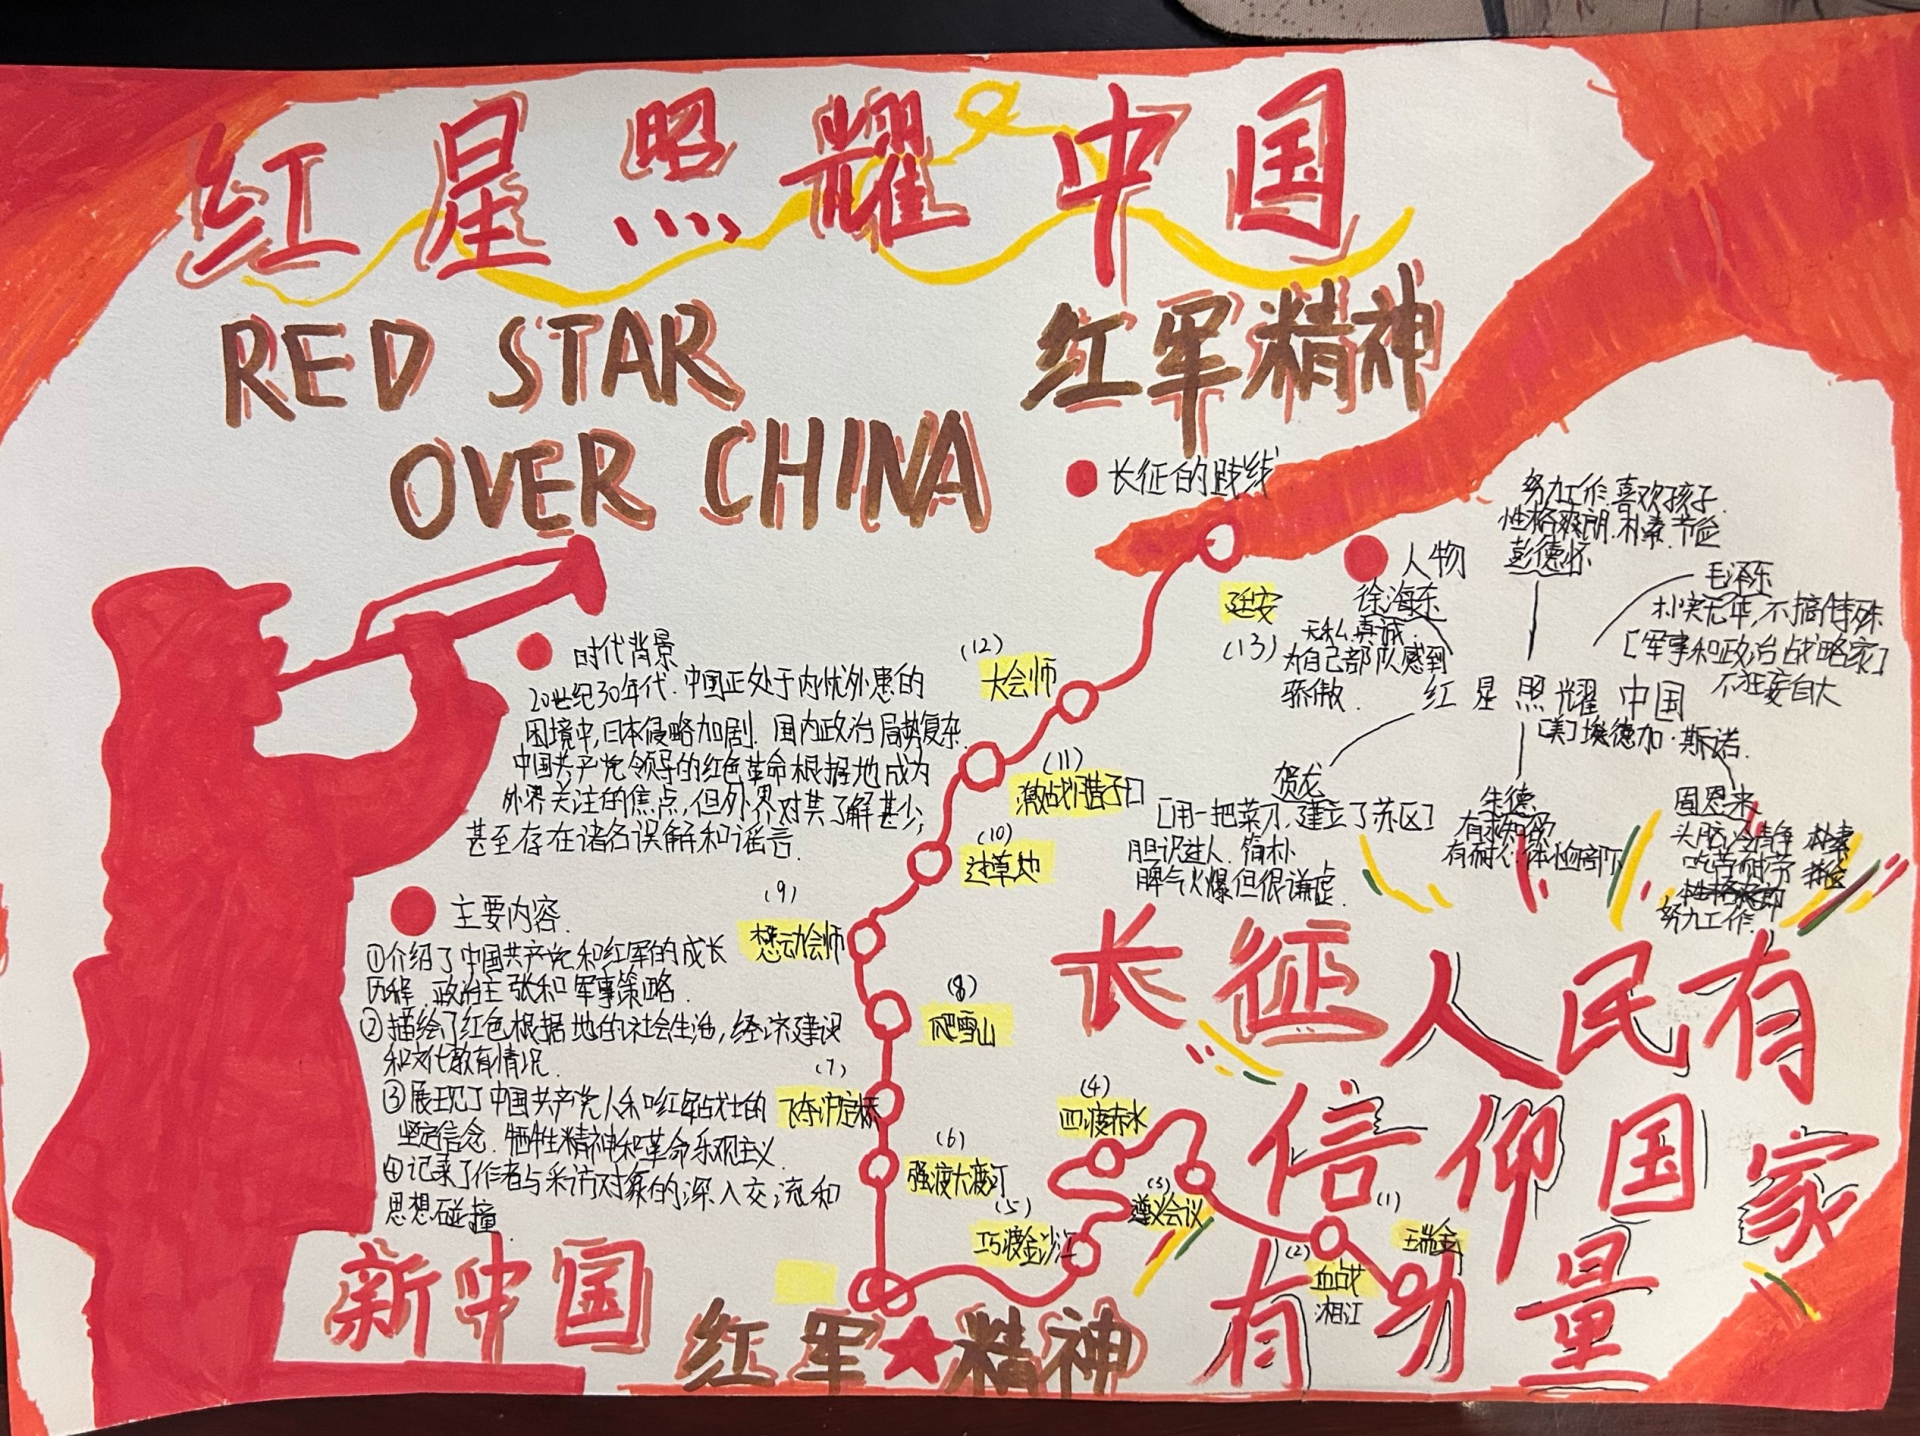 红星照耀中国
RED STAR
OVER CHINA
红军精神
时代背景
20世纪30年代.中国正处于内忧外患的
困境中,日本侵略加剧.国内政治局势复杂.
中国共产党领导的红色革命根据地成为
外界关注的焦点,但外界对其了解甚少,
甚至存在诸多误解和谣言.
主要内容.
①介绍了中国共产党和红军的成长
历程.政治主张和军事策略.
②描绘了红色根据地的社会生活,经济建设
和文化教育情况.
③展现了中国共产党人和红军战士的
坚定信念.牺牲精神和革命乐观主义.
④记录了作者与采访对象的深入交流和
思想碰撞.
长征的路线
(1)
瑞金
(2)
血战
湘江
(3)
遵义会议
(4)
四渡赤水
(5)
巧渡金沙江
(6)
强渡大渡河
(7)
飞夺泸定桥
(8)
爬雪山
(9)
懋功会师
(10)
过草地
(11)
激战腊子口
(12)
大会师
延安
(13)
人物
努力工作.喜欢孩子.
性格爽朗.朴素.节俭
彭德怀
徐海东
无私真诚.
为自己部队感到
骄傲.
毛泽东
朴实无华,不搞特殊
[军事和政治战略家]
不狂妄自大
红星照耀中国
[美]埃德加·斯诺.
贺龙
[用一把菜刀,建立了苏区]
胆识过人.简朴
脾气火爆但很谦虚.
朱德
有求知
有耐心.体恤部下
周恩来
头脑冷静 朴素
吃苦耐劳
努力工作.
长征人民有
信仰国家
有力量
新中国
红军★精神